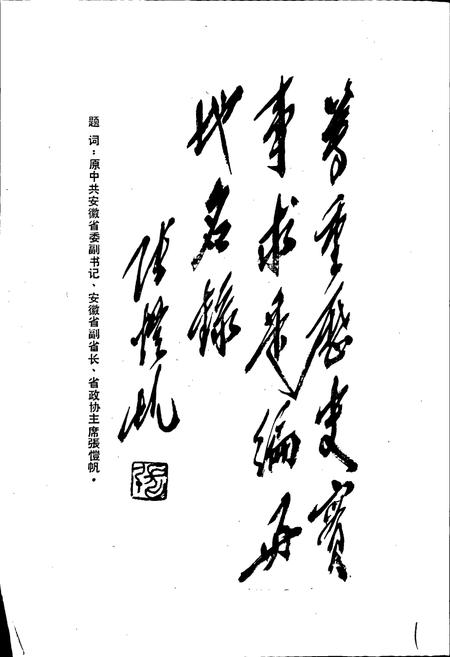 尊重歷史實
事求是編
地名錄
張愷帆
题词：原中共安徽省委副书记、安徽省副省长、省政协主席張愷帆。